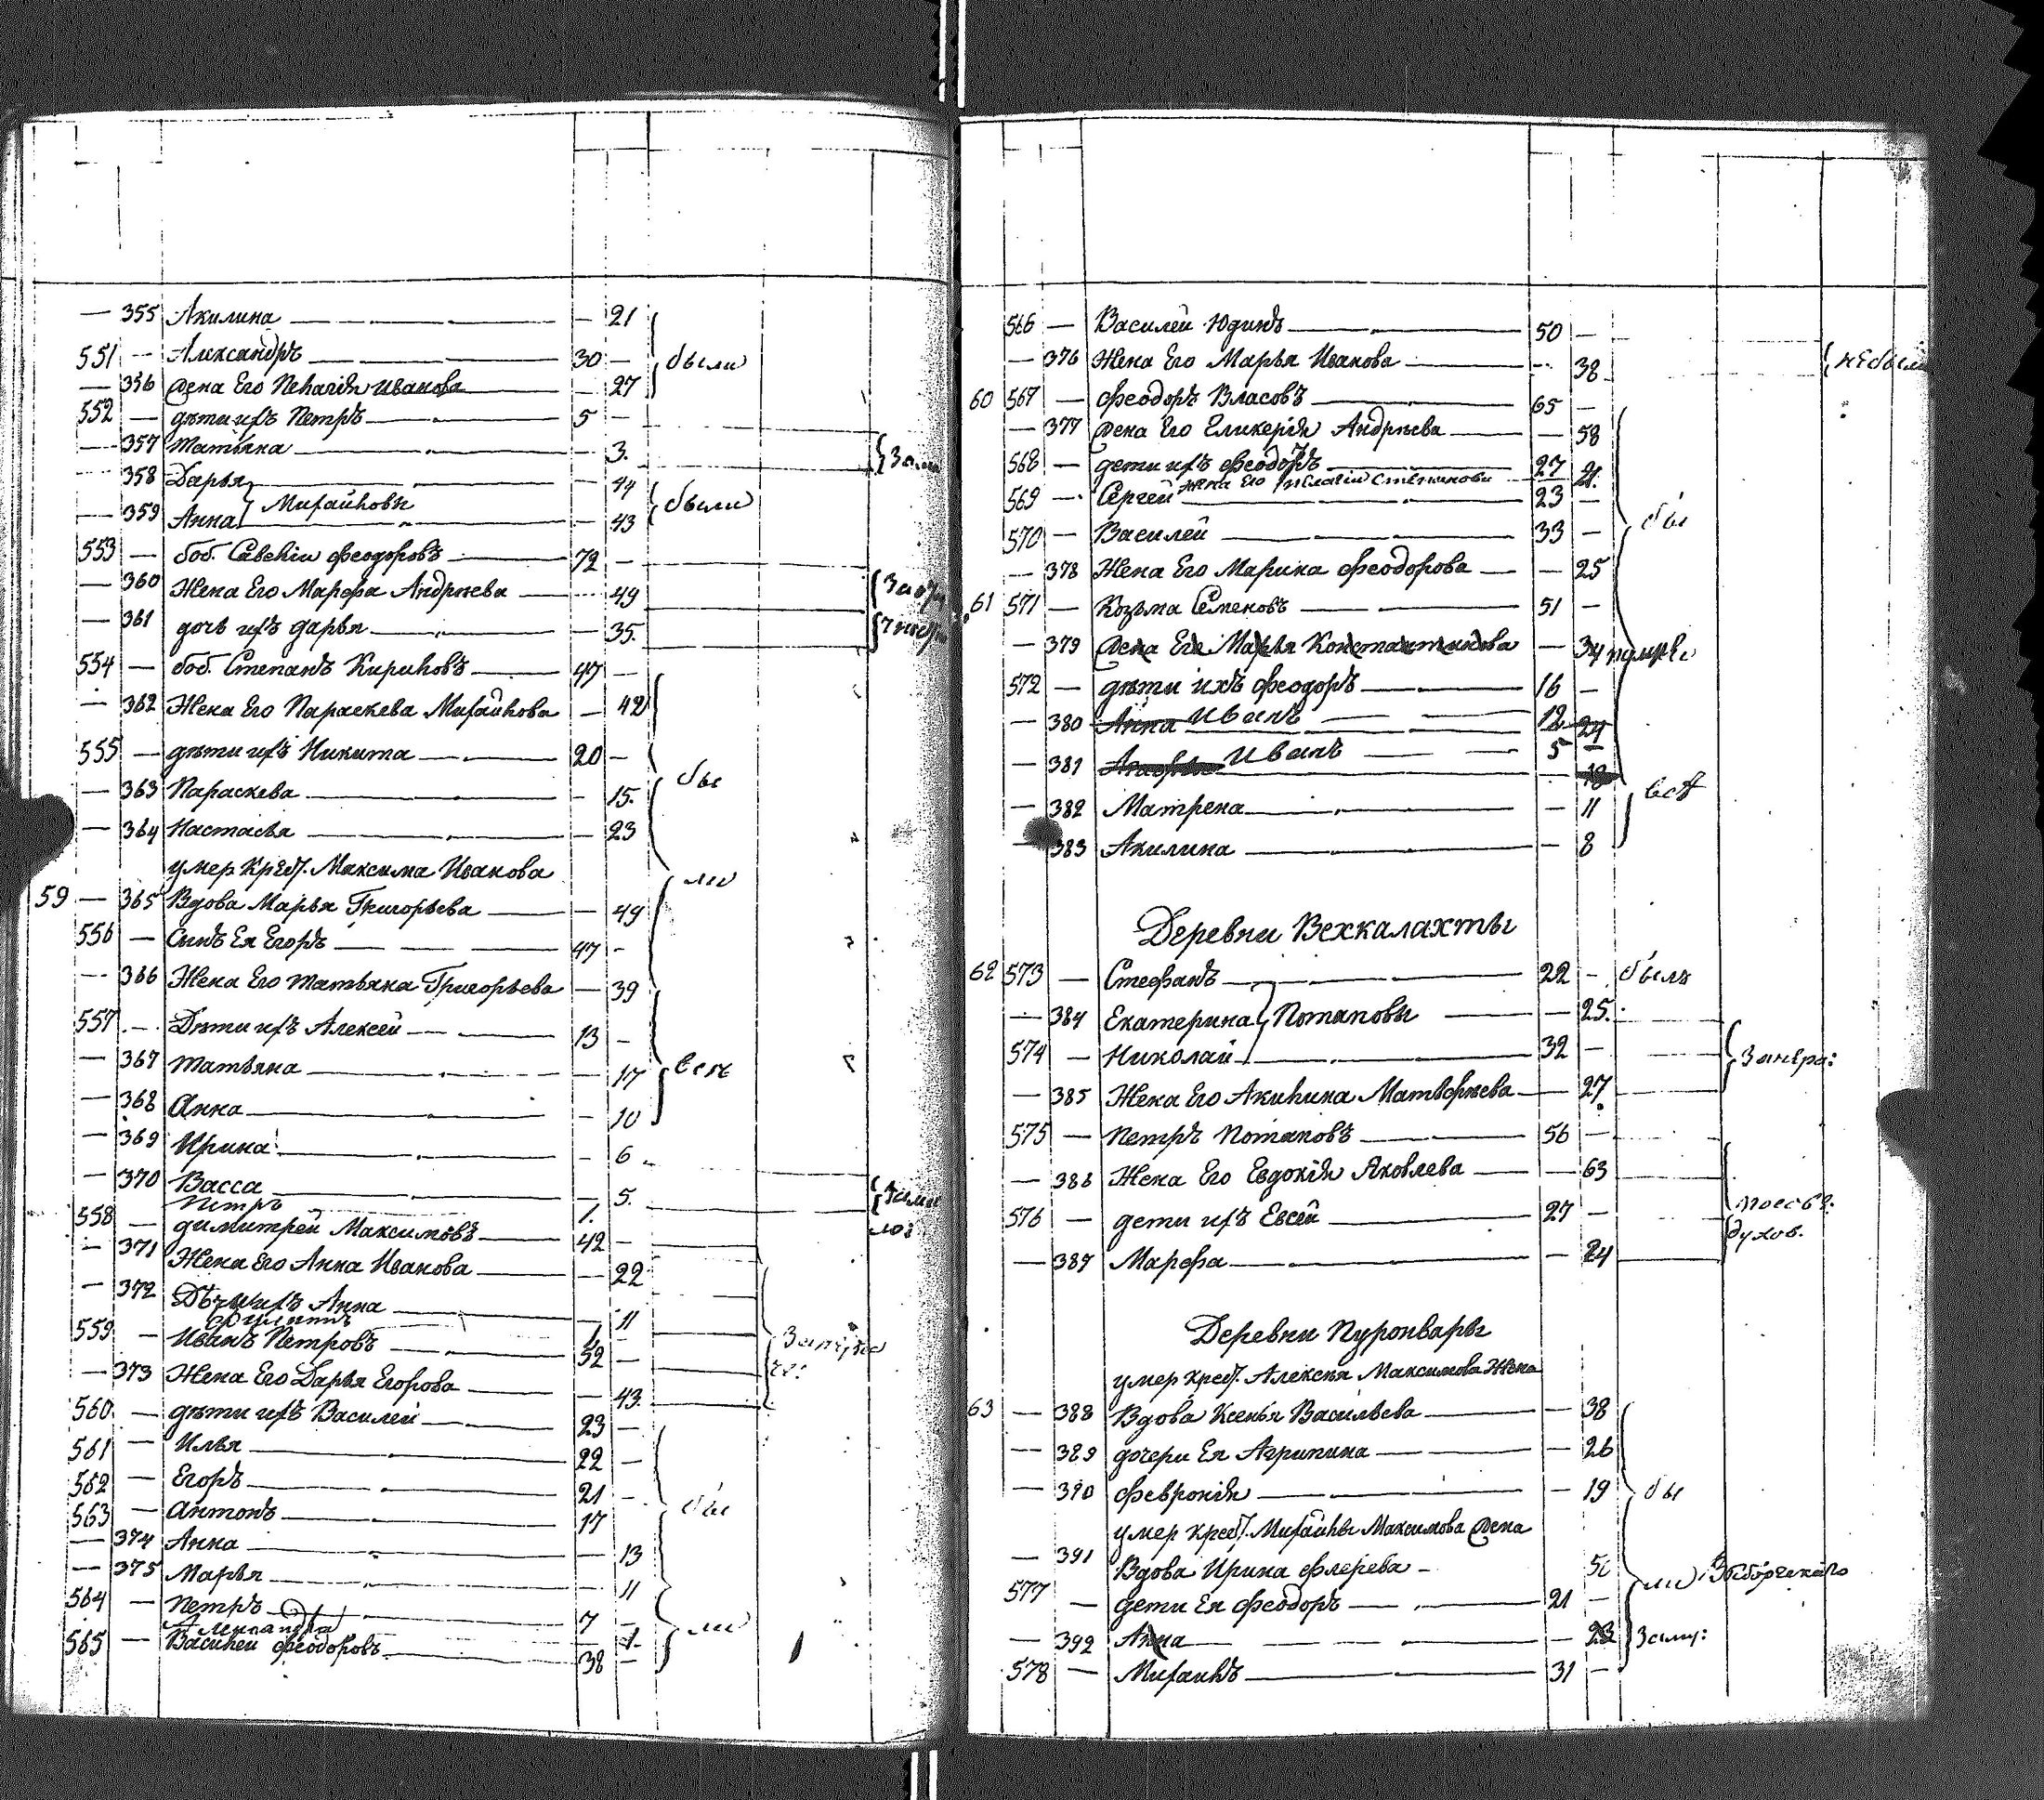 — 355 Акилина — — 21
551 — Александръ — 30 — были
— 356 Жена Его Пелагія Иванова — 27
552 — дѣти ихъ Петръ — 5 —
— 357 Татьяна — 3.
— 358 Дарья — 44
Михайловы были
— 359 Анна — 43
553 — боб. Савелій Феодоровъ — 72 —
— 360 Жена Его Марфа Андреева — 49
— 361 дочь ихъ Дарья — 35.
554 — боб. Степанъ Кириловъ — 47 —
— 362 Жена Его Параскева Михайлова — 42
555 — дѣти ихъ Никита — 20 —
бы
— 363 Параскева — 15.
— 364 Настасья — 23
умер Крест. Максима Иванова
ли
59 — 365 Вдова Марья Григорьева — 49
556 — Сынъ Ея Егоръ — 47 —
— 366 Жена Его Татьяна Григорьева — 39
557 — Дѣти ихъ Алексей — 13 —
— 367 Татьяна — 17 всѣ
— 368 Анна — 10
— 369 Ирина — 6
— 370 Васса — 5.
Петръ 1.
558 — Димитрей Максимовъ — 42 —
— 371 Жена Его Анна Иванова — 22
— 372 Дѣти ихъ Анна — 11
559 — Иванъ Петровъ — 52 —
— 373 Жена Его Дарья Егорова — 43.
560 — дѣти ихъ Василей — 23 —
561 — Илья — 22 —
562 — Егоръ — 21 —
бы
563 — Антонъ — 17
— 374 Анна — 13
— 375 Марья — 11
564 — Петръ — 7 —
ли
Александра — 1.
565 — Василей Феодоровъ — 38 —
566 — Василей Юдинъ — 50 —
— 376 Жена Его Марья Иванова — 38 небыли
60 567 — Феодоръ Власовъ — 65 —
— 377 Жена Его Гликерія Андреева — 58
568 — дети ихъ Феодоръ — 27
жена его Пелагія Степанова 21.
569 — Сергей — 23 —
бы
570 — Василей — 33 —
— 378 Жена Его Марина Феодорова — 25
61 571 — Козьма Семеновъ — 51 —
— 379 Жена Его Марья Константинова — 34
572 — дѣти ихъ Феодоръ — 16 —
— 380 Анна Иванъ — 12 24
— 381 Иванъ — 5 — 18
всѣ
— 382 Матрена — 11
— 383 Акилина — 8
Деревни Вехкалахты
62 573 — Стефанъ — 22 — былъ
— 384 Екатерина Потаповы — 25.
574 — Николай — 32 —
— 385 Жена Его Акилина Матвѣева — 27.
575 — Петръ Потаповъ — 56 —
— 386 Жена Его Евдокія Яковлева — 63
576 — дети ихъ Евсей — 27 —
духов.
— 387 Марфа — 24
Деревни Пуронвары
умер крест. Алексѣя Максимова Жена
63 — 388 Вдова Ксенья Васильева — 38
— 389 дочери Ея Агрипина — 26
— 390 Февронія — 19 бы
умер крест. Михайлы Максимова Жена
— 391 Вдова Ирина
ли
577 — дети Ея Феодоръ — 21 —
— 392 Анна — 23 Заму:
578 — Михаилъ — 31 —